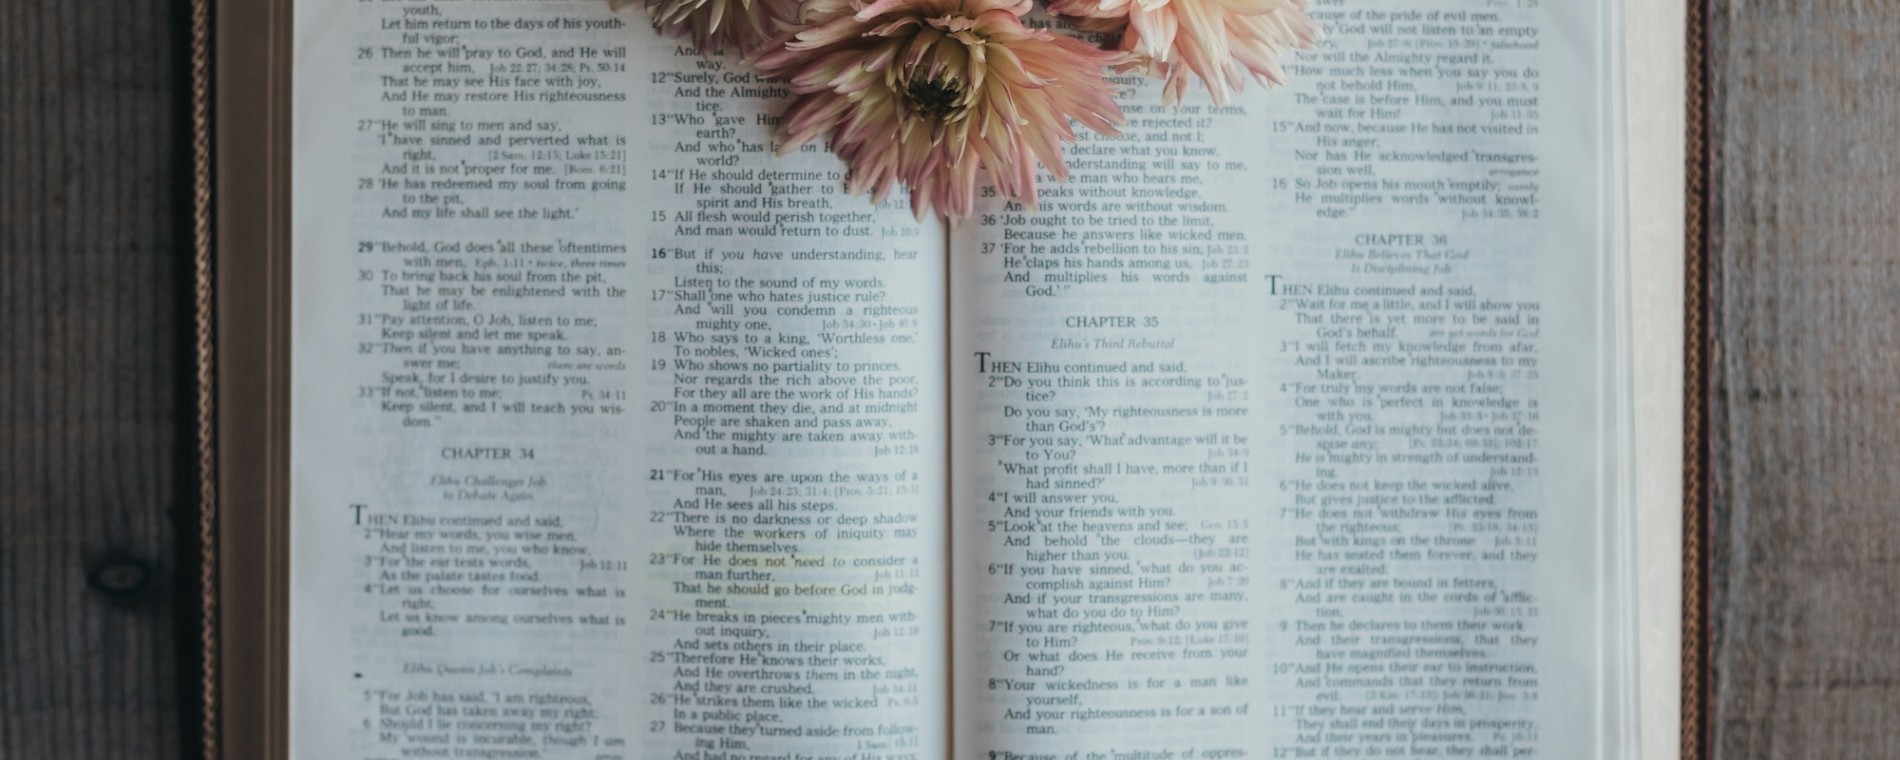 youth,
Let him return to the days of his youth-
ful vigor;
26 Then he will pray to God, and He will
accept him, Job 22:27; 34:28; Ps. 50:14
That he may see His face with joy,
And He may restore His righteousness
to man.
27 "He will sing to men and say,
'I have sinned and perverted what is
right, [2 Sam. 12:13; Luke 15:21]
And it is not proper for me. [Rom. 6:21]
28 'He has redeemed my soul from going
to the pit,
And my life shall see the light.'
29 "Behold, God does all these oftentimes
with men, Eph. 1:11 • twice, three times
30 To bring back his soul from the pit,
That he may be enlightened with the
light of life.
31 "Pay attention, O Job, listen to me;
Keep silent and let me speak.
32 "Then if you have anything to say, an-
swer me; there are words
Speak, for I desire to justify you.
33 "If not, listen to me; Ps. 34:11
Keep silent, and I will teach you wis-
dom."
CHAPTER 34
Elihu Challenges Job
to Debate Again
THEN Elihu continued and said,
2 "Hear my words, you wise men,
And listen to me, you who know.
3 "For the ear tests words, Job 12:11
As the palate tastes food.
4 "Let us choose for ourselves what is
right;
Let us know among ourselves what is
good.
Elihu Quotes Job's Complaints
5 "For Job has said, 'I am righteous,
But God has taken away my right;
6 Should I lie concerning my right?
My wound is incurable, though I am
without transgression.'
And
way.
12 "Surely, God
And the Almighty
tice.
13 "Who gave Him
earth?
And who has on
world?
14 "If He should determine to
If He should gather to
spirit and His breath,
15 All flesh would perish together,
And man would return to dust. Job 10:9
16 "But if you have understanding, hear
this;
Listen to the sound of my words.
17 "Shall one who hates justice rule?
And will you condemn a righteous
mighty one, Job 34:30 • Job 40:8
18 Who says to a king, 'Worthless one,'
To nobles, 'Wicked ones';
19 Who shows no partiality to princes,
Nor regards the rich above the poor,
For they all are the work of His hands?
20 "In a moment they die, and at midnight
People are shaken and pass away,
And the mighty are taken away with-
out a hand. Job 12:19
21 "For His eyes are upon the ways of a
man, Job 24:23; 31:4; [Prov. 5:21; 15:3]
And He sees all his steps.
22 "There is no darkness or deep shadow
Where the workers of iniquity may
hide themselves.
23 "For He does not need to consider a
man further, Job 11:11
That he should go before God in judg-
ment.
24 "He breaks in pieces mighty men with-
out inquiry, Job 12:19
And sets others in their place.
25 "Therefore He knows their works,
And He overthrows them in the night,
And they are crushed. Job 34:11
26 "He strikes them like the wicked
In a public place,
27 Because they turned aside from follow-
ing Him, 1 Sam. 15:11
And had no regard for any of His ways,
has
iquity,
on your terms,
rejected it?
and not I;
declare what you know.
understanding will say to me,
man who hears me,
35 speaks without knowledge,
his words are without wisdom.
36 'Job ought to be tried to the limit,
Because he answers like wicked men.
37 'For he adds rebellion to his sin;
He claps his hands among us,
And multiplies his words against
God.' "
CHAPTER 35
Elihu's Third Rebuttal
THEN Elihu continued and said,
2 "Do you think this is according to jus-
tice? Job 27:2
Do you say, 'My righteousness is more
than God's'?
3 "For you say, 'What advantage will it be
to You? Job 34:9
What profit shall I have, more than if I
had sinned?' Job 9:30, 31
4 "I will answer you,
And your friends with you.
5 "Look at the heavens and see; Gen. 15:5
And behold the clouds—they are
higher than you. [Job 22:12]
6 "If you have sinned, what do you ac-
complish against Him? Job 7:20
And if your transgressions are many,
what do you do to Him?
7 "If you are righteous, what do you give
to Him? Prov. 9:12; [Luke 17:10]
Or what does He receive from your
hand?
8 "Your wickedness is for a man like
yourself,
And your righteousness is for a son of
man.
9 "Because of the multitude of oppres-
cause of the pride of evil men.
God will not listen to an empty
cry, Job 27:9; [Prov. 15:29] • falsehood
Nor will the Almighty regard it.
"How much less when you say you do
not behold Him,
The case is before Him, and you must
wait for Him!
15 "And now, because He has not visited in
His anger,
Nor has He acknowledged transgres-
sion well, arrogance
16 So Job opens his mouth emptily;
He multiplies words without knowl-
edge." Job 34:35; 38:2
CHAPTER 36
Elihu Believes That God
Is Disciplining Job
THEN Elihu continued and said,
2 "Wait for me a little, and I will show you
That there is yet more to be said in
God's behalf. are yet words for God
3 "I will fetch my knowledge from afar,
And I will ascribe righteousness to my
Maker. Job 8:3; 37:23
4 "For truly my words are not false;
One who is perfect in knowledge is
with you. Job 33:3 • Job 37:16
5 "Behold, God is mighty but does not de-
spise any;
He is mighty in strength of understand-
ing. Job 12:13
6 "He does not keep the wicked alive,
But gives justice to the afflicted.
7 "He does not withdraw His eyes from
the righteous;
But with kings on the throne Job 5:11
He has seated them forever, and they
are exalted.
8 "And if they are bound in fetters,
And are caught in the cords of afflic-
tion,
9 Then he declares to them their work
And their transgressions, that they
have magnified themselves.
10 "And He opens their ear to instruction,
And commands that they return from
evil.
11 "If they hear and serve Him,
They shall end their days in prosperity,
And their years in pleasures.
12 "But if they do not hear, they shall per-